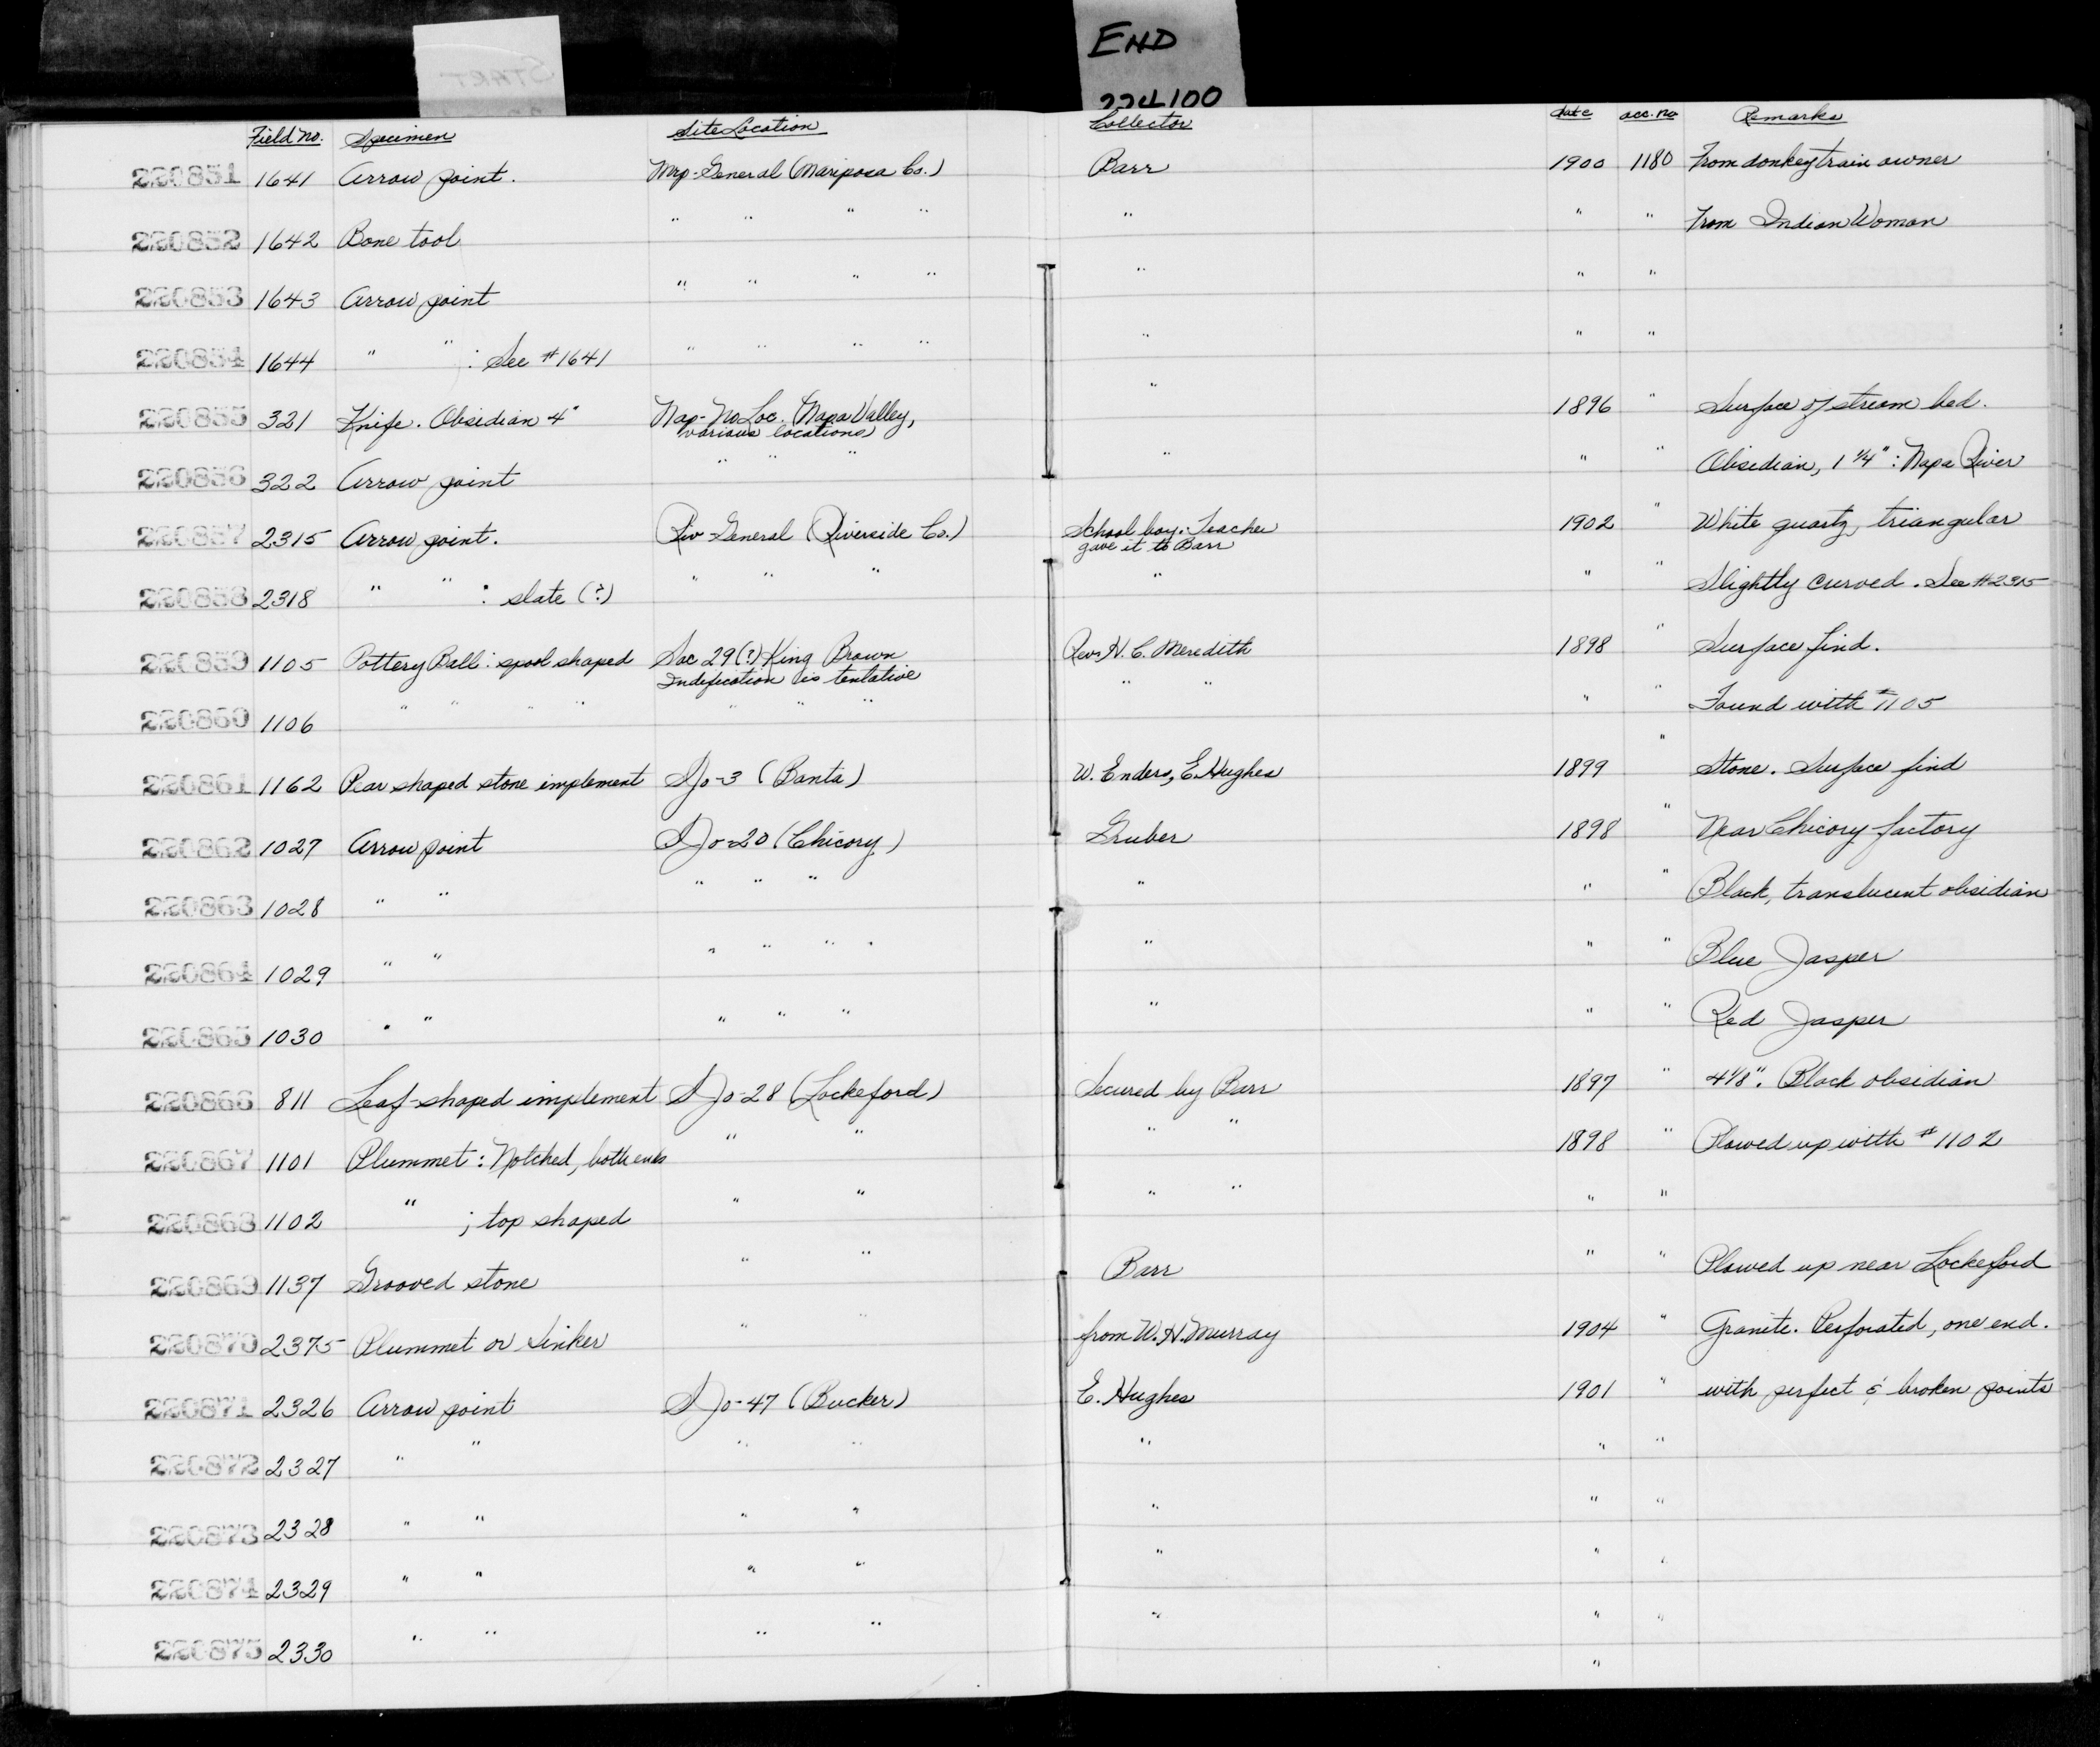 START
END
224100
Field no. Specimen Site Location Collector date acc. no Remarks
220851 1641 Arrow point. Mrp-General (Mariposa Co.) Barr 1900 1180 From donkeytrain owner
220852 1642 Bone tool " " " " " " " From Indian Woman
220853 1643 Arrow point " " " " " " "
220854 1644 " " : See #1641 " " " " " " "
220855 321 Knife. Obsidian 4" Nap-No Loc. (Napa Valley, various locations) " 1896 " Surface of stream bed.
220856 322 Arrow point " " " " " " Obsidian, 1 1/4" : Napa River
220857 2315 Arrow point. Riv-General (Riverside Co.) School boy: Teacher gave it to Barr 1902 " White quartz, triangular
220858 2318 " " : slate (?) " " " " " " Slightly curved. See #2315
220859 1105 Pottery Ball: spool shaped Sac 29(?) King Brown Indification is tentative Rev. H. C. Meredith 1898 " Surface find.
220860 1106 " " " " " " " " " " " Found with #1105
220861 1162 Pear shaped stone implement SJo-3 (Banta) W. Enders, E. Hughes 1899 " Stone. Surface find
220862 1027 Arrow point SJo-20 (Chicory) Gruber 1898 " Near Chicory factory
220863 1028 " " " " " " " " Black, translucent obsidian
220864 1029 " " " " " " " " " Blue Jasper
220865 1030 " " " " " " " " Red Jasper
220866 811 Leaf-shaped implement SJo-28 (Lockeford) Secured by Barr 1897 " 4 1/8". Black obsidian
220867 1101 Plummet: Notched, both ends " " " " 1898 " Plowed up with #1102
220868 1102 " ; top shaped " " " " " "
220869 1137 Grooved stone " " Barr " " Plowed up near Lockeford
220870 2375 Plummet or Sinker " " from W. H. Murray 1904 " Granite. Perforated, one end.
220871 2326 Arrow point SJo-47 (Bucker) E. Hughes 1901 " with perfect & broken points
220872 2327 " " " " " " "
220873 2328 " " " " " " "
220874 2329 " " " " " " "
220875 2330 " " " " " " "
"